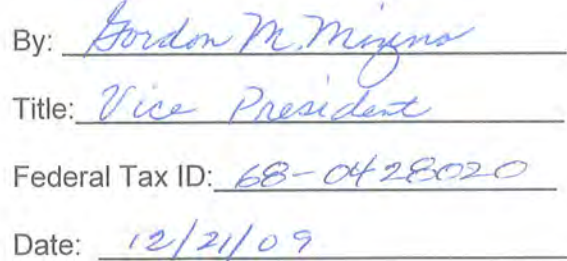 By: Gordon M. Mizeno
Title: Vice President
Federal Tax ID: 68-0428020
Date: 12/21/09